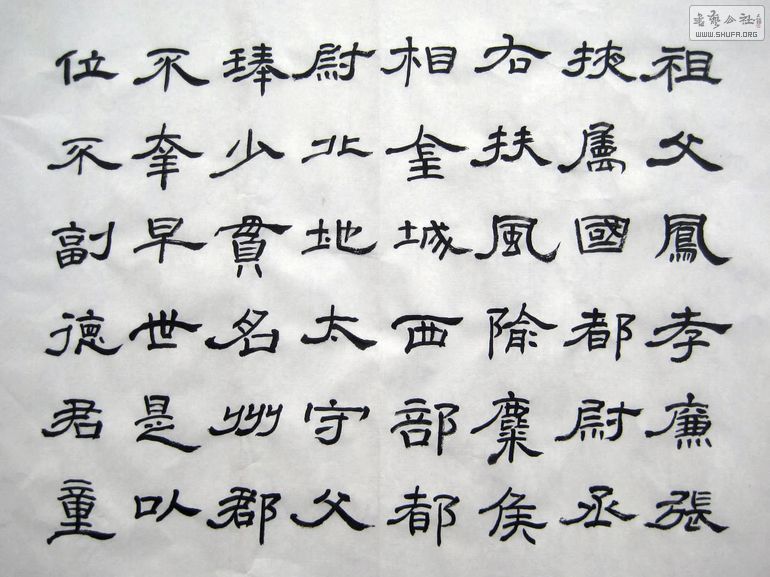 祖父鳳孝廉張
掖屬國都尉丞
右扶風隃麋侯
相金城西部都
尉北地太守父
琫少貫名州郡
不幸早世是以
位不副德君童
書藝公社
WWW.SHUFA.ORG